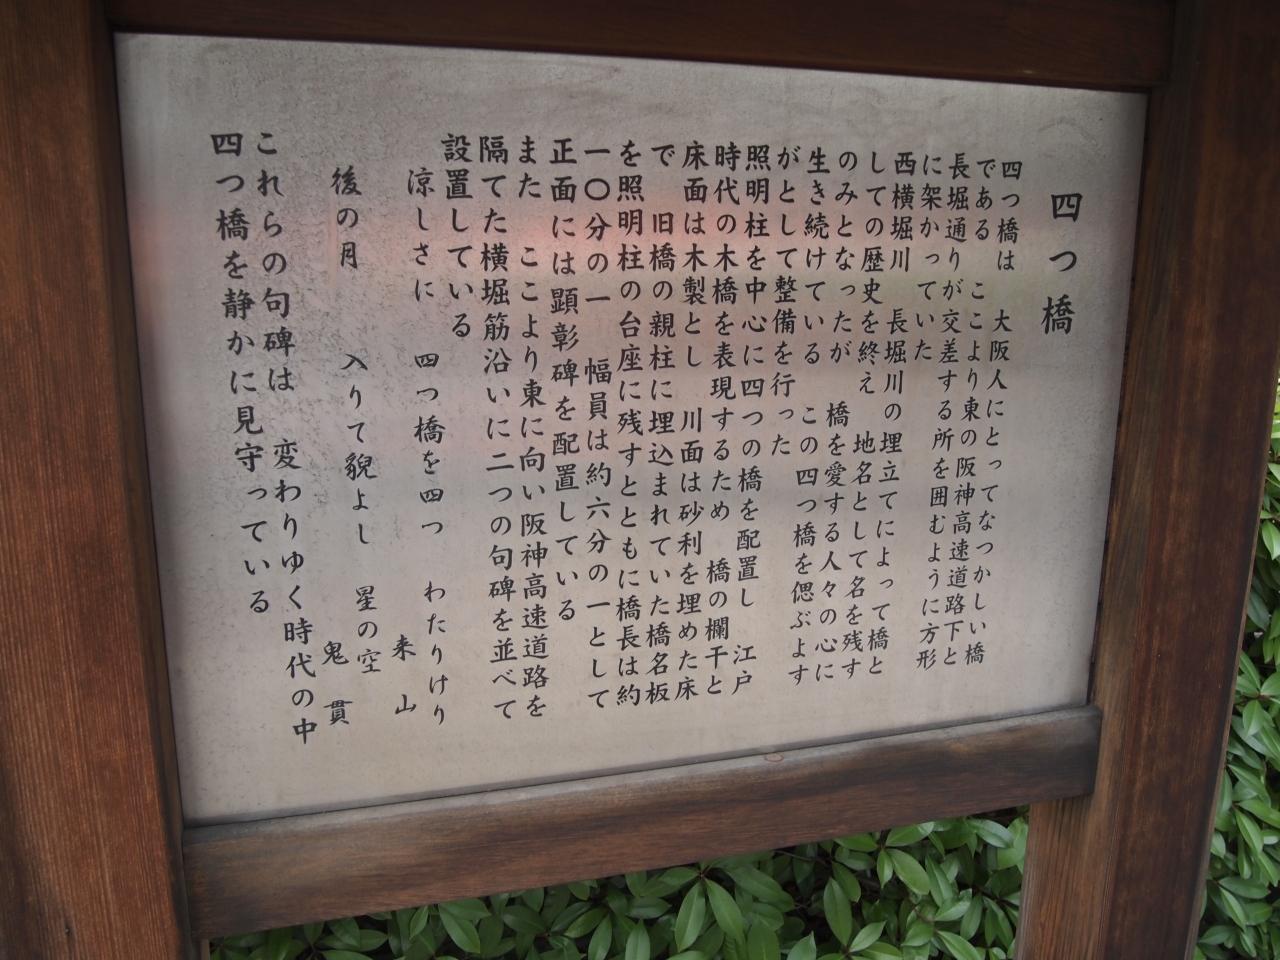 四つ橋
四つ橋は　大阪人にとってなつかしい橋
である　ここより東の阪神高速道路下と
長堀通りが交差する所を囲むように方形
に架かっていた
西横堀川　長堀川の埋立てによって橋と
しての歴史を終え　地名として名を残す
のみとなったが　橋を愛する人々の心に
生き続けている　この四つ橋を偲ぶよす
がとして整備を行った
照明柱を中心に四つの橋を配置し　江戸
時代の木橋を表現するため　橋の欄干と
床面は木製とし　川面は砂利を埋めた床
で　旧橋の親柱に埋込まれていた橋名板
を照明柱の台座に残すとともに橋長は約
一〇分の一　幅員は約六分の一として
正面には顕彰碑を配置している
また　ここより東に向い阪神高速道路を
隔てた横堀筋沿いに二つの句碑を並べて
設置している
涼しさに　四つ橋を四つ　わたりけり
来山
後の月　入りて貌よし　星の空
鬼貫
これらの句碑は　変わりゆく時代の中
四つ橋を静かに見守っている